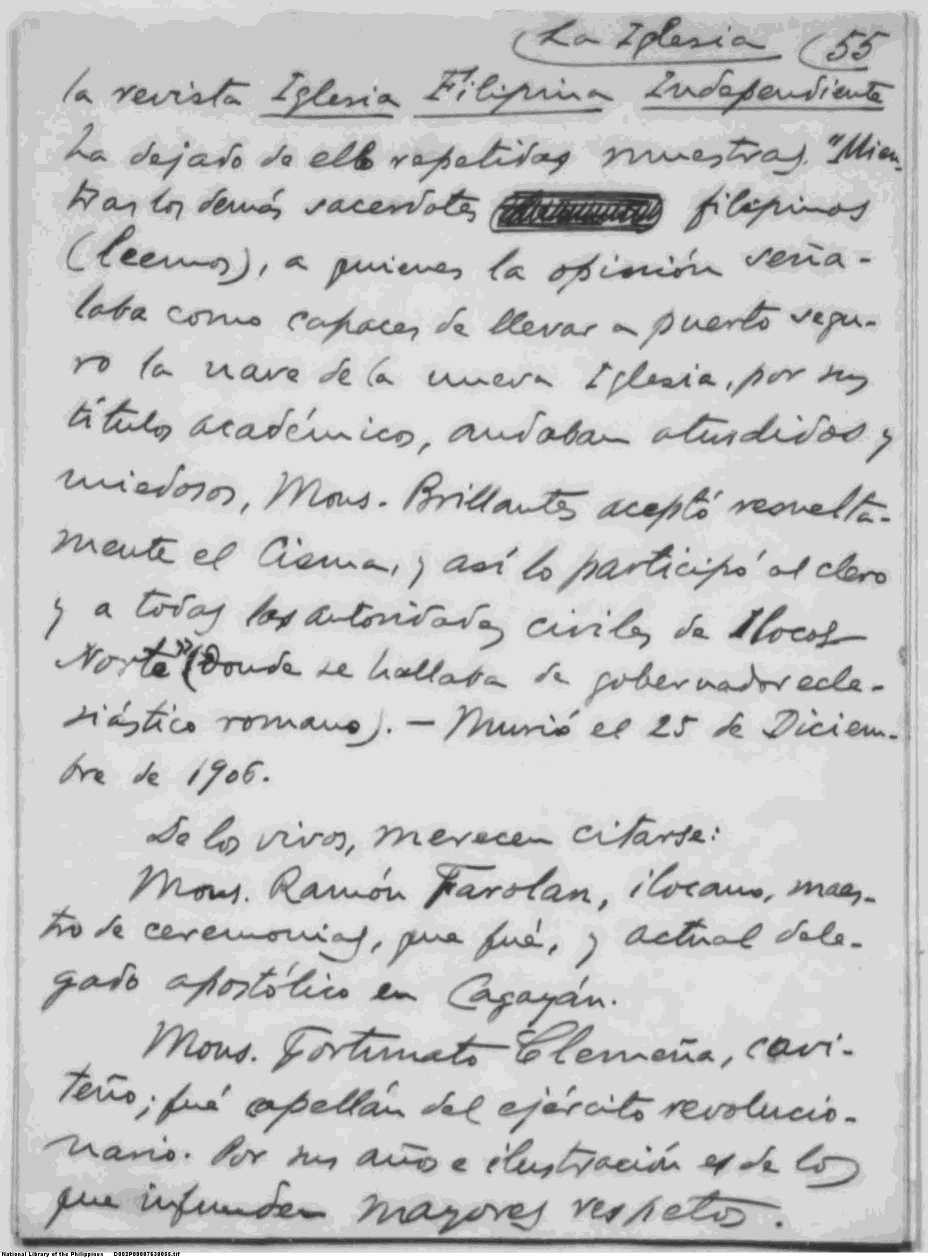 La Iglesia (55
la revista Iglesia Filipina Independiente
ha dejado de ello repetidas muestras. "Mien-
tras los demás sacerdotes filipinos
(leemos), a quienes la opinión seña-
laba como capaces de llevar a puerto segu-
ro la nave de la nueva Iglesia, por sus
títulos académicos, andaban aturdidos y
miedosos, Mons. Brillantes aceptó resuelta-
mente el Cisma, y así lo participó al clero
y a todas las autoridades civiles de Ilocos
Norte" (donde se hallaba de gobernador ecle-
siástico romano). — Murió el 25 de Diciem-
bre de 1906.
De los vivos, merecen citarse:
Mons. Ramón Farolan, ilocano, maes-
tro de ceremonias, que fué, y actual dele-
gado apostólico en Cagayán.
Mons. Fortunato Clemeña, cavi-
teño; fué capellán del ejército revolucio-
nario. Por sus años e ilustración es de los
que infunden mayores respetos.
National Library of the Philippines D002P00007630055.tif